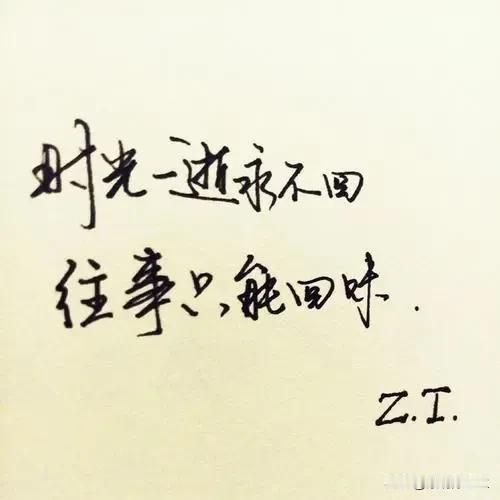 时光一逝永不回
往事只能回味.
Z.I.